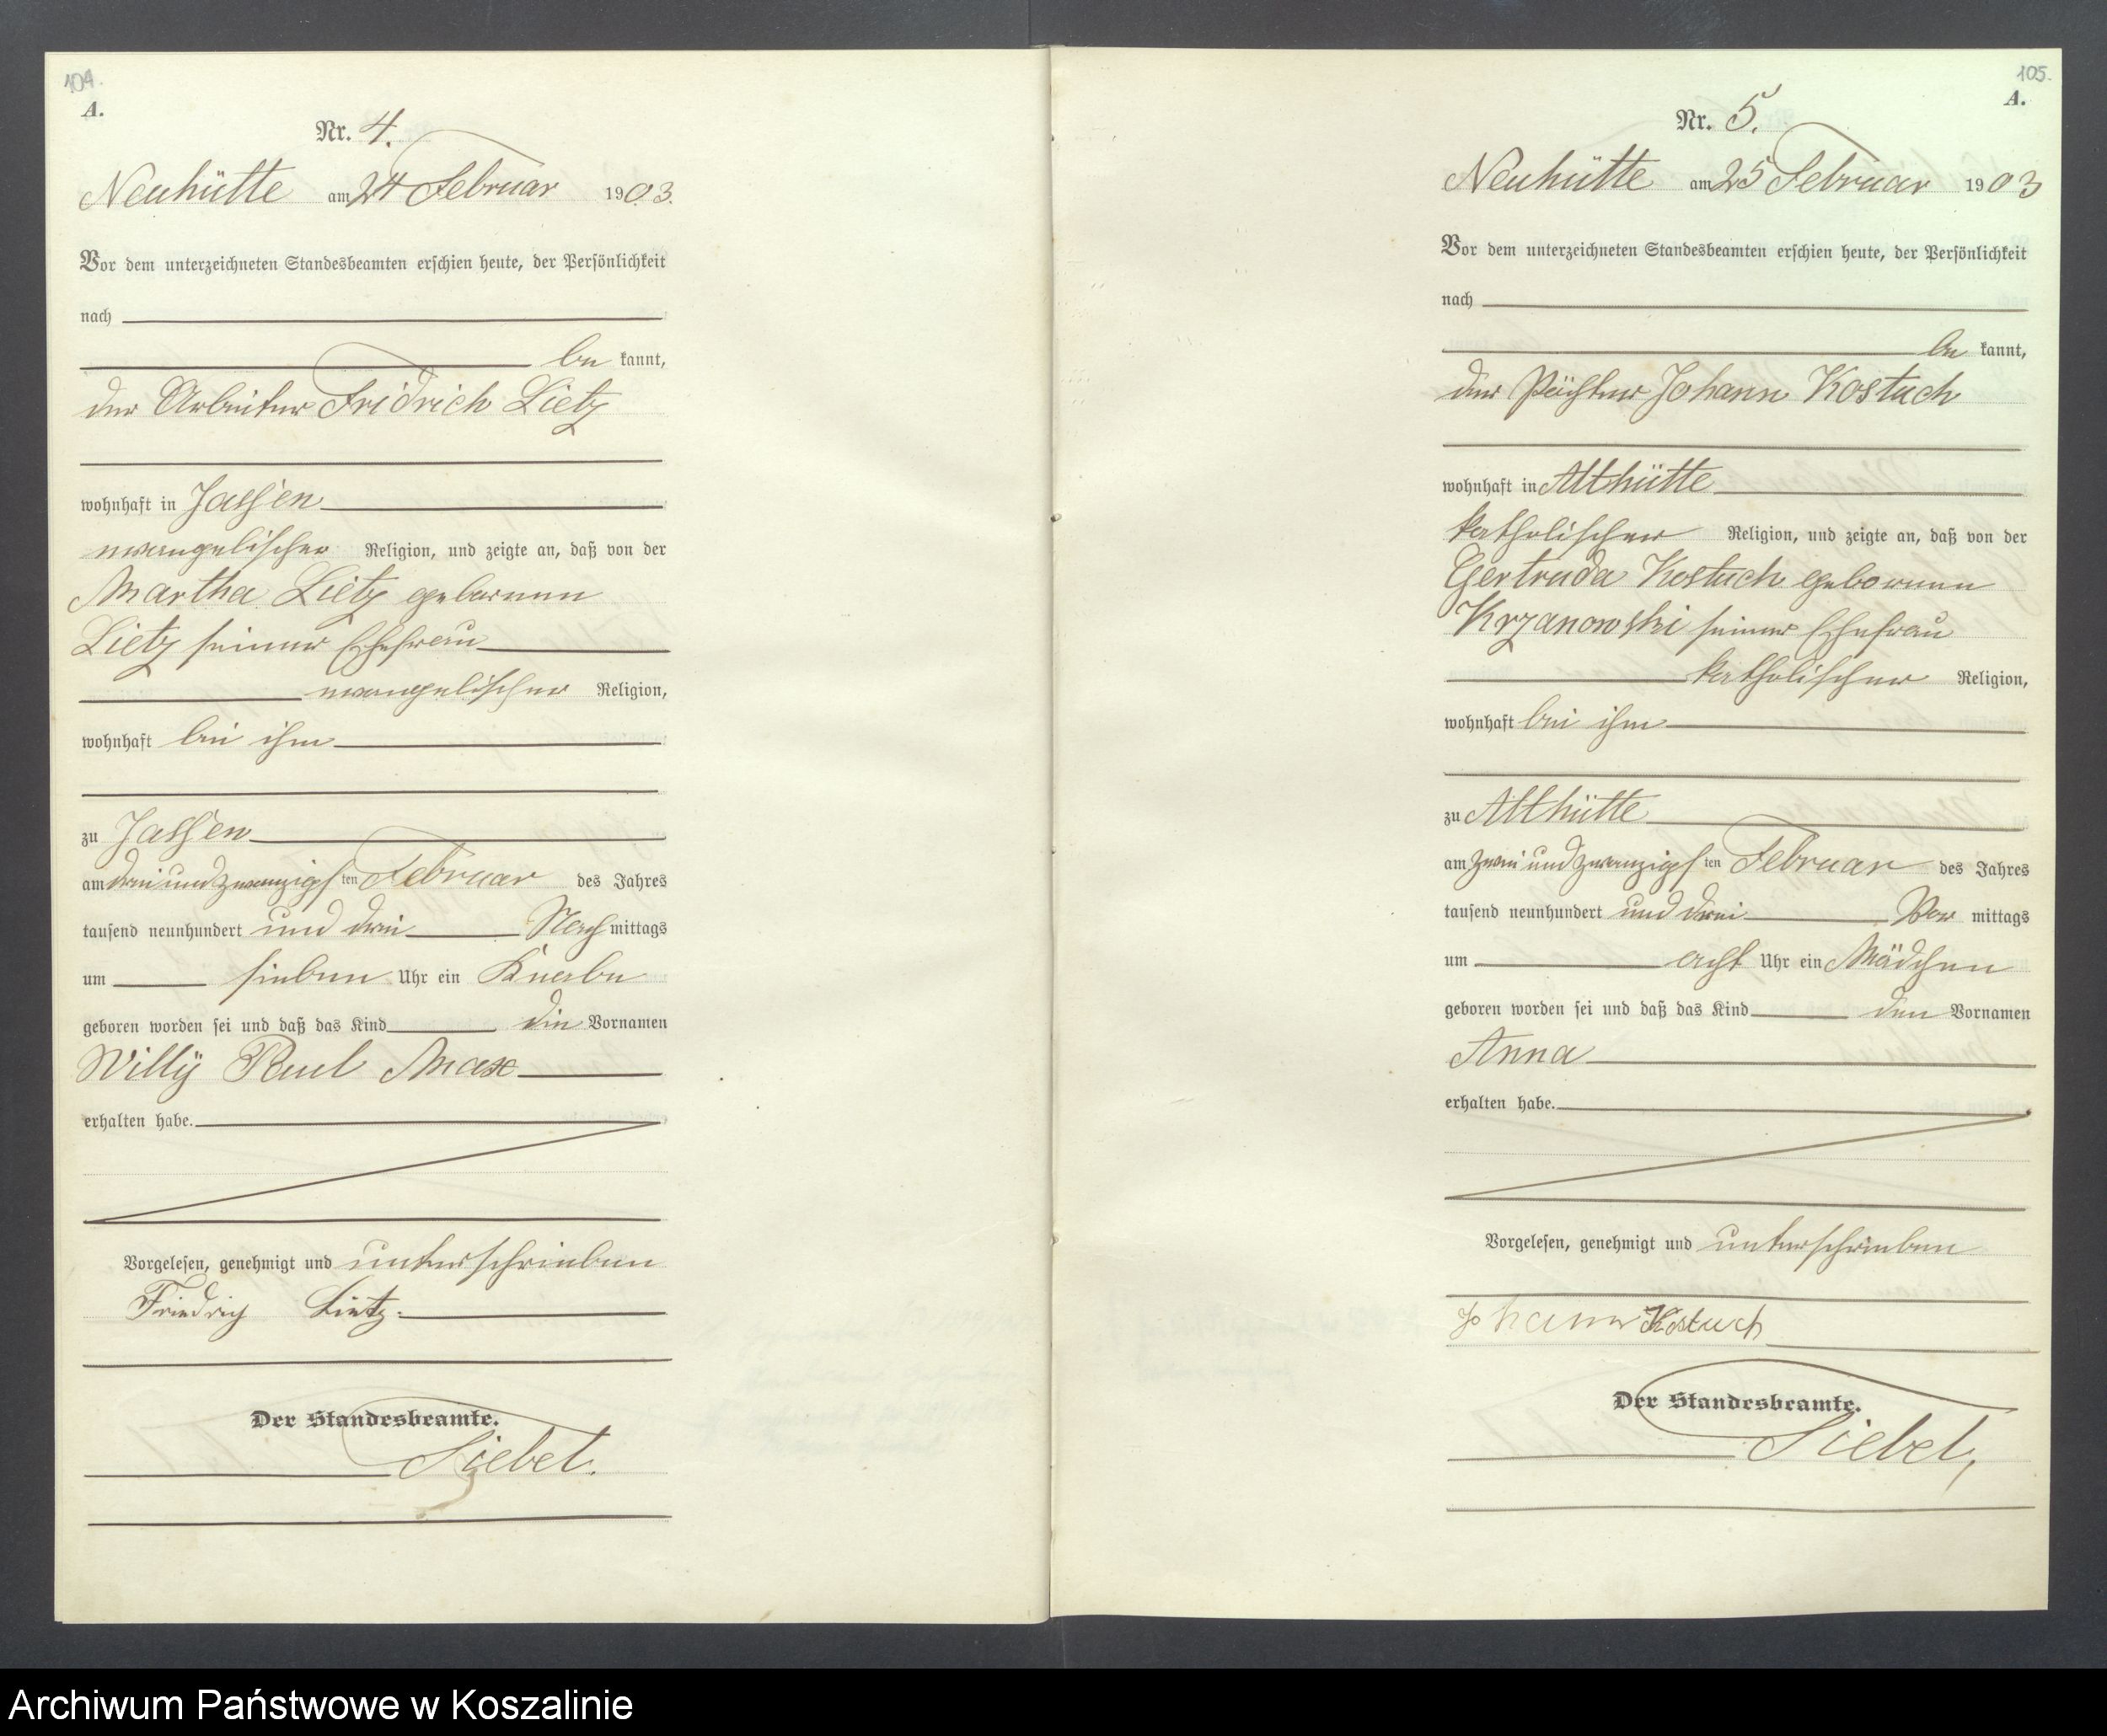 104.
A.
Nr. 4.
Neuhütte am 24 Februar 1903.
Vor dem unterzeichneten Standesbeamten erschien heute, der Persönlichkeit
nach
be kannt,
der Arbeiter Fridrich Lietz
wohnhaft in Jassen
evangelischer Religion, und zeigte an, daß von der
Martha Lietz geborenen
Lietz seiner Ehefrau
evangelischer Religion,
wohnhaft bei ihm
zu Jassen
am drei und zwanzigsten Februar des Jahres
tausend neunhundert und drei Nach mittags
um sieben Uhr ein Knabe
geboren worden sei und daß das Kind die Vornamen
Willÿ Paul Max
erhalten habe.
Vorgelesen, genehmigt und unterschrieben
Friedrich Lietz.
Der Standesbeamte.
Siebet.
105.
A.
Nr. 5.
Neuhütte am 25 Februar 1903
Vor dem unterzeichneten Standesbeamten erschien heute, der Persönlichkeit
nach
be kannt,
der Pächter Johann Kostuch
wohnhaft in Althütte
katholischer Religion, und zeigte an, daß von der
Gertruda Kostuch geborenen
Krzanowski seiner Ehefrau
katholischer Religion,
wohnhaft bei ihm
zu Althütte
am zwei und zwanzigsten Februar des Jahres
tausend neunhundert und drei Vor mittags
um acht Uhr ein Mädchen
geboren worden sei und daß das Kind den Vornamen
Anna
erhalten habe.
Vorgelesen, genehmigt und unterschrieben
Johann Kostuch
Der Standesbeamte.
Siebet,
Archiwum Państwowe w Koszalinie